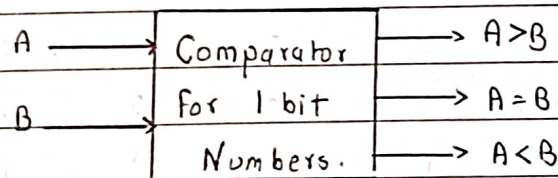 A
B
Comparator
for 1 bit
Numbers.
A>B
A=B
A<B